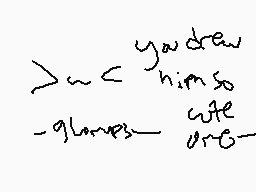 you drew
him so
cute
omg
>w<
-glomps-